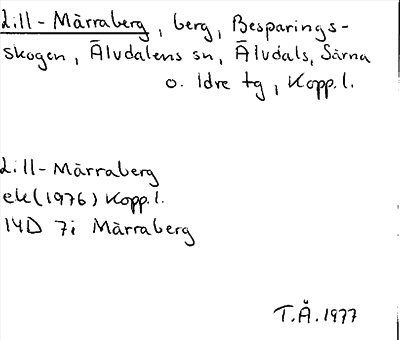 Lill-Märraberg, berg, Besparings-
skogen, Älvdalens sn, Älvdals, Särna
o. Idre tg, Kopp.l.
Lill-Märraberg
ek (1976) Kopp.l.
14D 7i Märraberg
T.Å. 1977